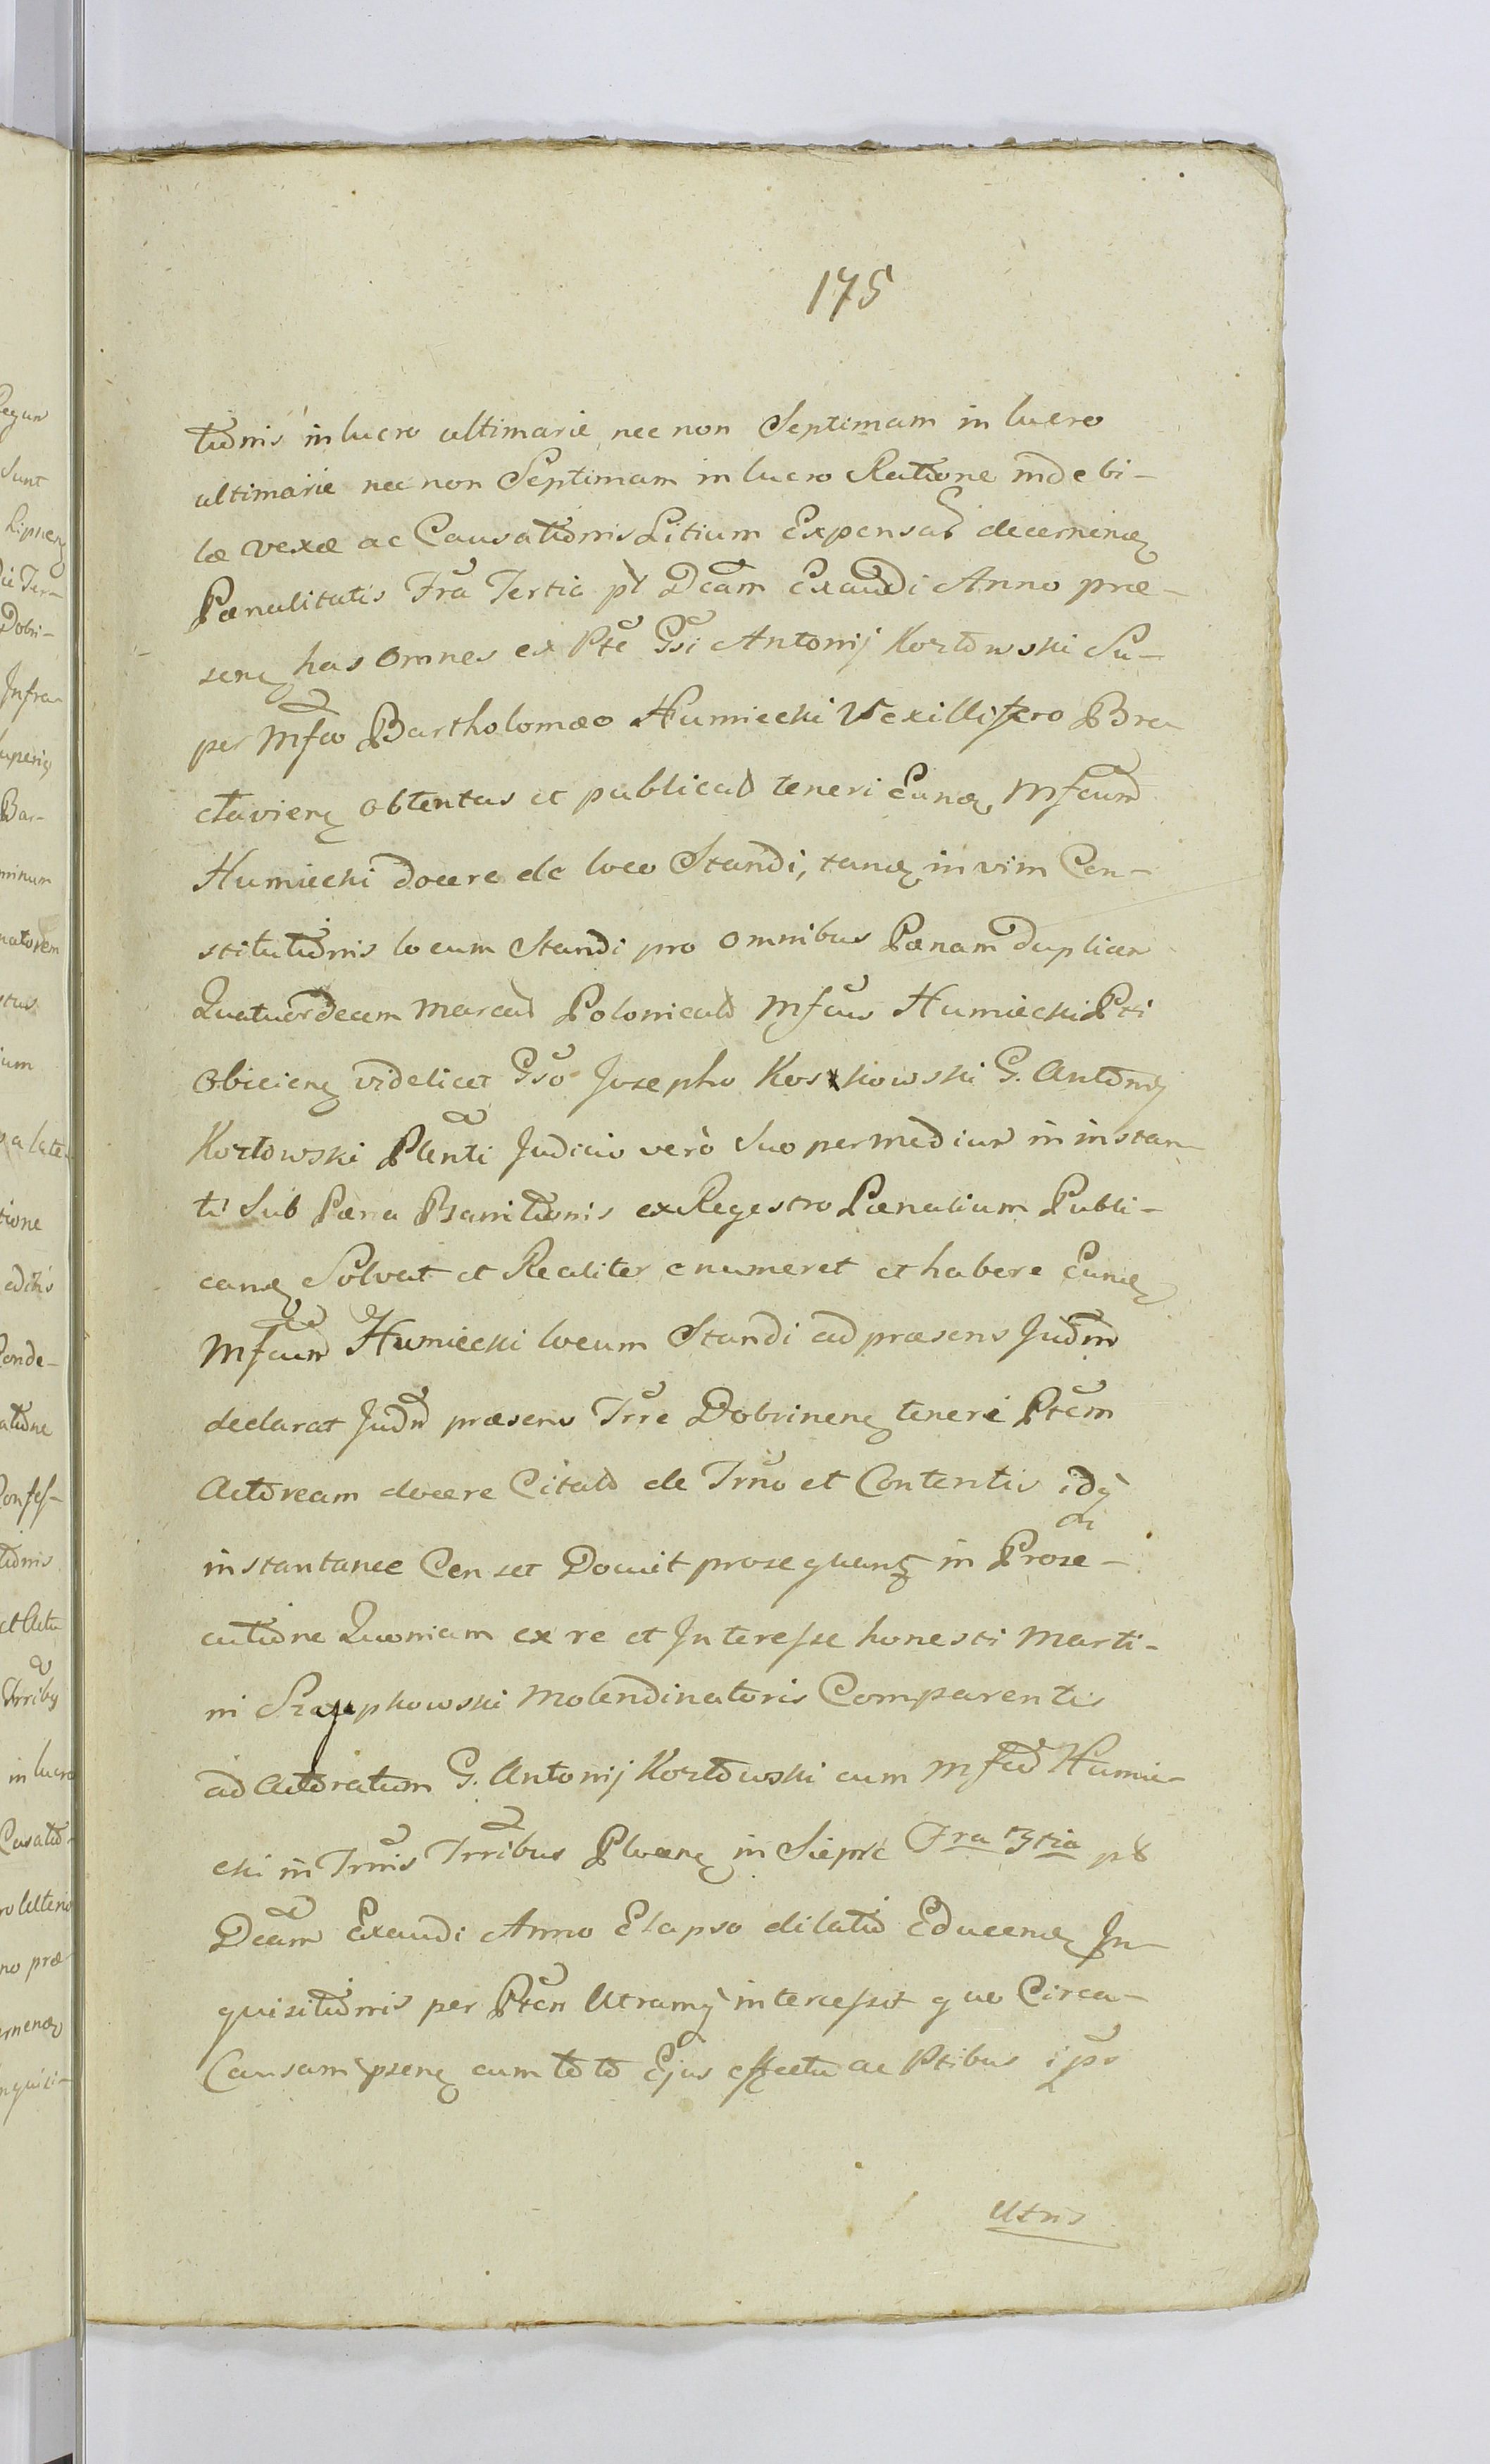 175
tionis in lucro ultimarie nec non Septimam in lucro
ultimarie nec non Septimam in lucro Ratione indebi-
læ vexæ ac Causationis Litium Expensas decernen
Pænalitatis Fra Tertia pt Dcam Exaudi Anno præ-
sen has Omnes ex Pte Gsi Antonij Kozłowski Su-
per Mfco Bartholomæo Humiecki Vexillifero Bra
claviens obtentas et publicas teneri Eund Mfcum
Humiecki docere de loco Standi, tand in vim Con-
stitutionis locum Standi pro Omnibus Pænam duplicem
Quatuordecem Marcas Polonicales Mfcus Humiecki Pti
Obicien videlicet Gso Josepho Koskowski G. Antonij
Kozłowski Plenti Judicio verò Suo per medium in instan-
ti Sub Pæna Banitionis ex Regestro Pænalium Publi-
cand Solvat et Realiter enumeret et habere Eund
Mfcum Humiecki locum Standi ad præsens Judm
declarat Judm præsens Trre Dobrinen teneri Ptem
Actoream docere Citatos de Trno et Contentis idq
instantanee Censet Docuit prosequens in Prose-
cutione Quoniam ex re et Interesse honesti Marti-
ni Szczupkowski Molendinatoris Comparentis
ad Actoratum G. Antonij Kozłowski cum Mfco Humie-
cki in Trnis Trribus Plocens in Sieprc Fra 3tia pt
Dcam Exaudi Anno Elapso dilatio Educend In-
quisitionis per Ptem Utramq intercessit quo Circa-
Causam psen cum toto Ejus effectu ac Ptibus ips
Utris